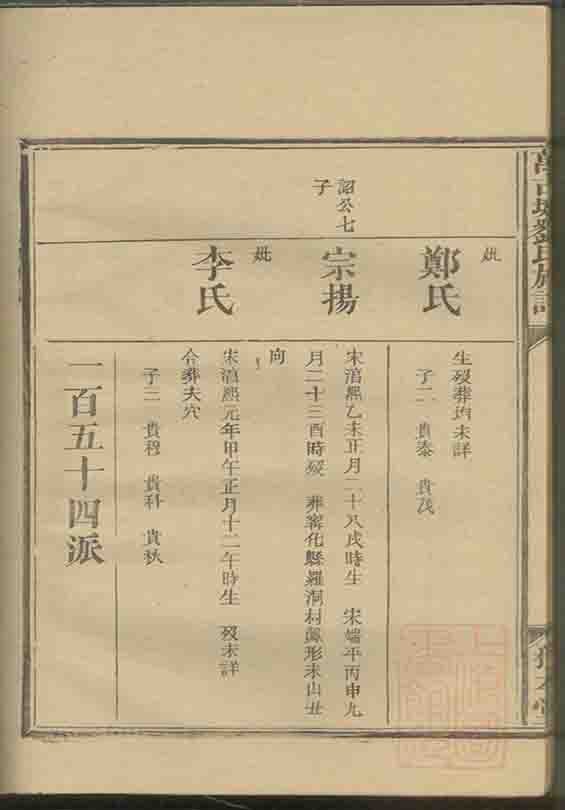 劉氏族譜
妣
鄭氏
生歿葬均未詳
子二 貴泰 貴茂
詔公七
子
宗揚
宋淳熙乙未正月二十八戌時生 宋端平丙申九
月二十三酉時歿 葬寗化縣羅洞村獅形未山丑
向
妣
李氏
宋淳熙元年甲午正月十二午時生 歿未詳
合葬夫穴
子三 貴穆 貴科 貴秋
一百五十四派